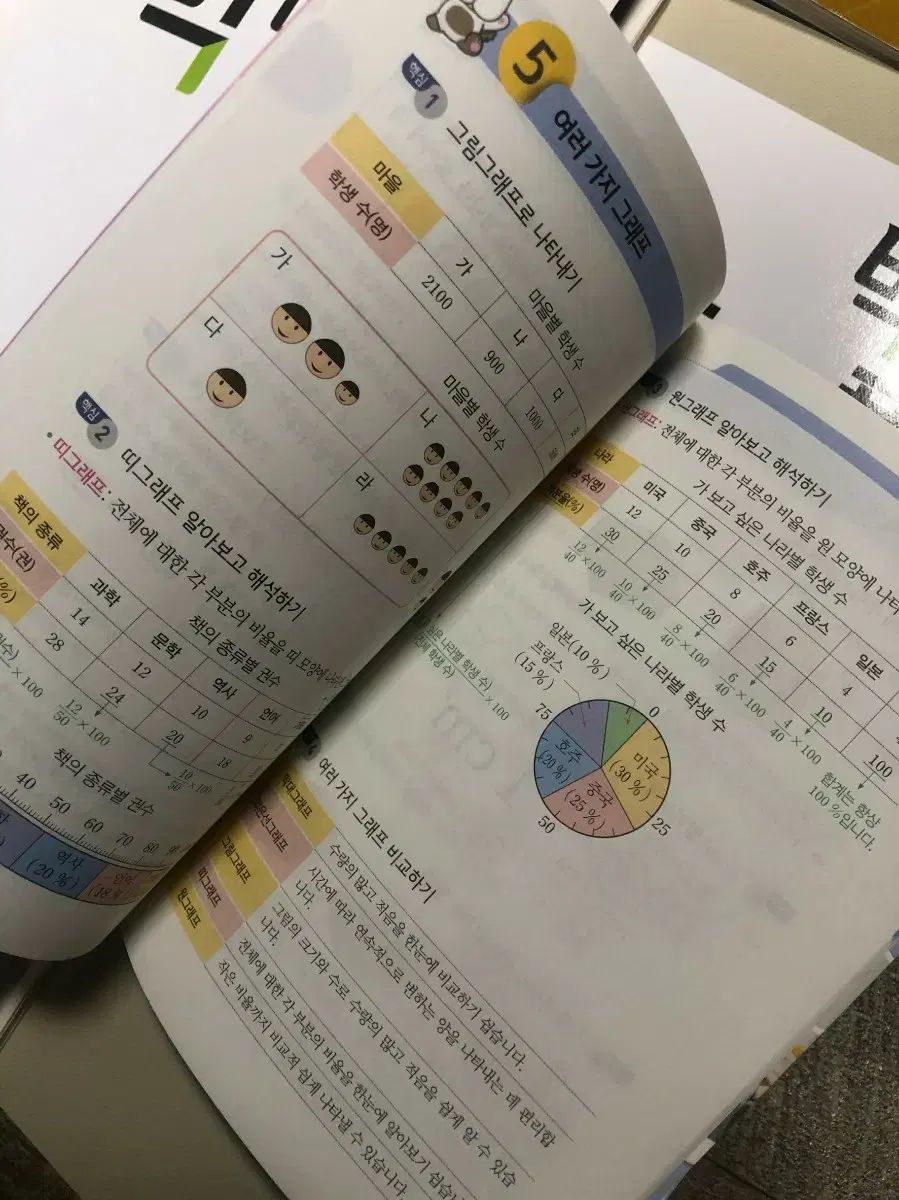 5
여러 가지 그래프
핵심 1
그림그래프로 나타내기
마을별 학생 수
마을 가 나 다
학생 수(명) 2100 990 1000
마을별 학생 수
가 나
다 라
핵심 2
띠그래프 알아보고 해석하기
• 띠그래프: 전체에 대한 각 부분의 비율을 띠 모양에
책의 종류별 권수
책의 종류 과학 문학 역사 언어
권수(권) 14 12 10 9
(%) 28 24 20 18
12/50 ×100
10/50 ×100
책의 종류별 권수
40 50 60 70 80
역사
(20 %)
언어
(18 %)
3
원그래프 알아보고 해석하기
원그래프: 전체에 대한 각 부분의 비율을 원 모양에
가 보고 싶은 나라별 학생 수
나라 미국 중국 호주 프랑스 일본
학생 수(명) 12 10 8 6 4
백분율(%) 30 25 20 15 10 100
12/40 ×100
10/40 ×100
8/40 ×100
6/40 ×100
4/40 ×100
합계는 항상
100 %입니다.
가 보고 싶은 나라별 학생 수
일본(10 %)
프랑스
(15 %)
0
75
25
50
호주
(20 %)
미국
(30 %)
중국
(25 %)
여러 가지 그래프 비교하기
막대그래프 수량의 많고 적음을 한눈에 비교하기 쉽습니다.
꺾은선그래프 시간에 따라 연속적으로 변하는 양을 나타내는 데 편리합
니다.
그림그래프 그림의 크기와 수로 수량의 많고 적음을 쉽게 알 수 있습
니다.
띠그래프 전체에 대한 각 부분의 비율을 한눈에 알아보기 쉽습니
원그래프 작은 비율까지 비교적 쉽게 나타낼 수 있습니다.